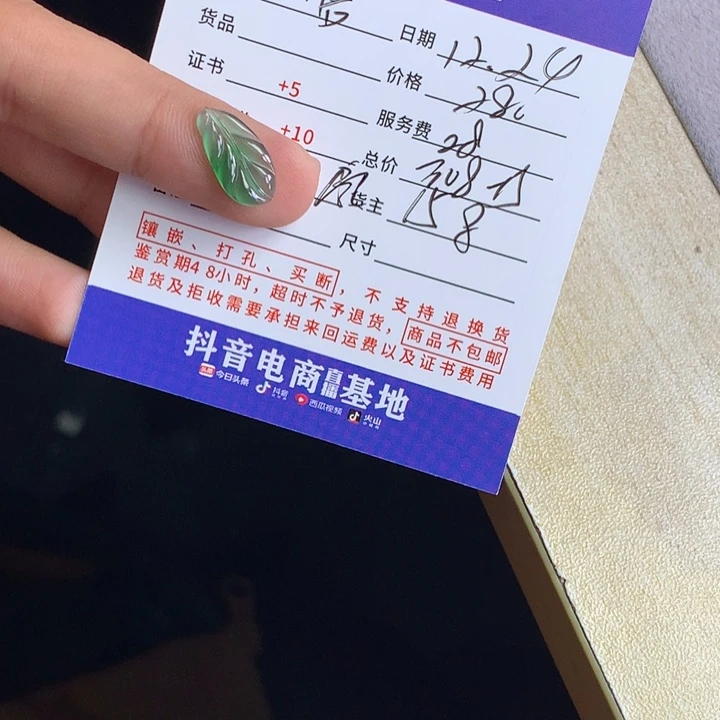 货品
日期 12.24
证书 +5
价格 280
+10
服务费 28
总价 308
货主 158
尺寸
镶嵌、打孔、买断，不支持退换货
鉴赏期48小时，超时不予退货，商品不包邮
退货及拒收需要承担来回运费以及证书费用
抖音电商直播基地
头条 今日头条 抖音 西瓜视频 火山